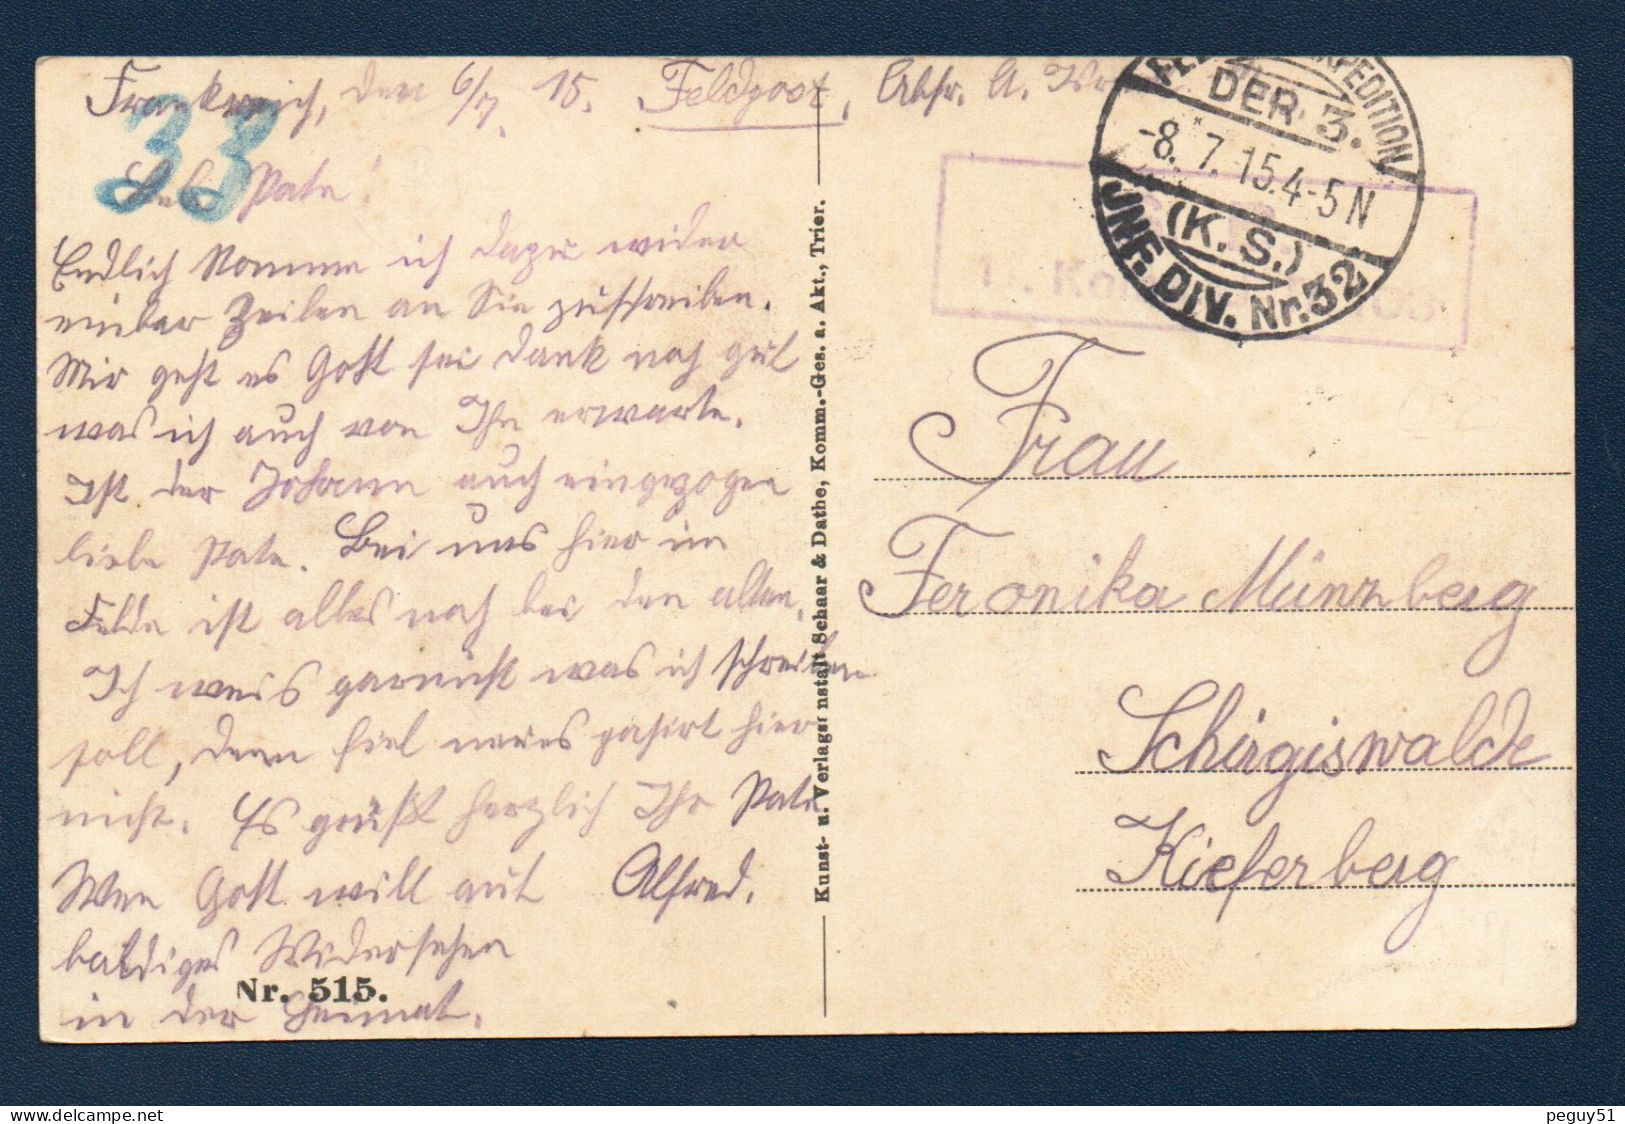 Frankreich, den 6/7. 15. Feldpost, Abs. A.
33
Liebe Pate!
Endlich komme ich dazu wider
einbar Zeilen an Sie zuschreiben.
Mir geht es Gott sei dank noch gut
was ich auch von Ihn erwarte.
Ist der Johann auch eingezogen
liebe Pate. Bei uns hier im
Felde ist alles noch bei den alten.
Ich weis garnicht was ich schreiben
soll, denn fiel neues pasirt hier
nicht. Es grüßt herzlich Ihr Pate
Alfred.
Wen Gott will auf
baldiges Widersehen
in der Heimat.
Nr. 515.
Kunst- u. Verlagsanstalt Schaar & Dathe, Komm.-Ges. a. Akt., Trier.
EXPEDITION
DER 3.
-8. 7. 15. 4-5 N
(K. S.)
INF. DIV. Nr. 32
Frau
Feronika Münzberg
Schirgiswalde
Kieferberg
peguy51